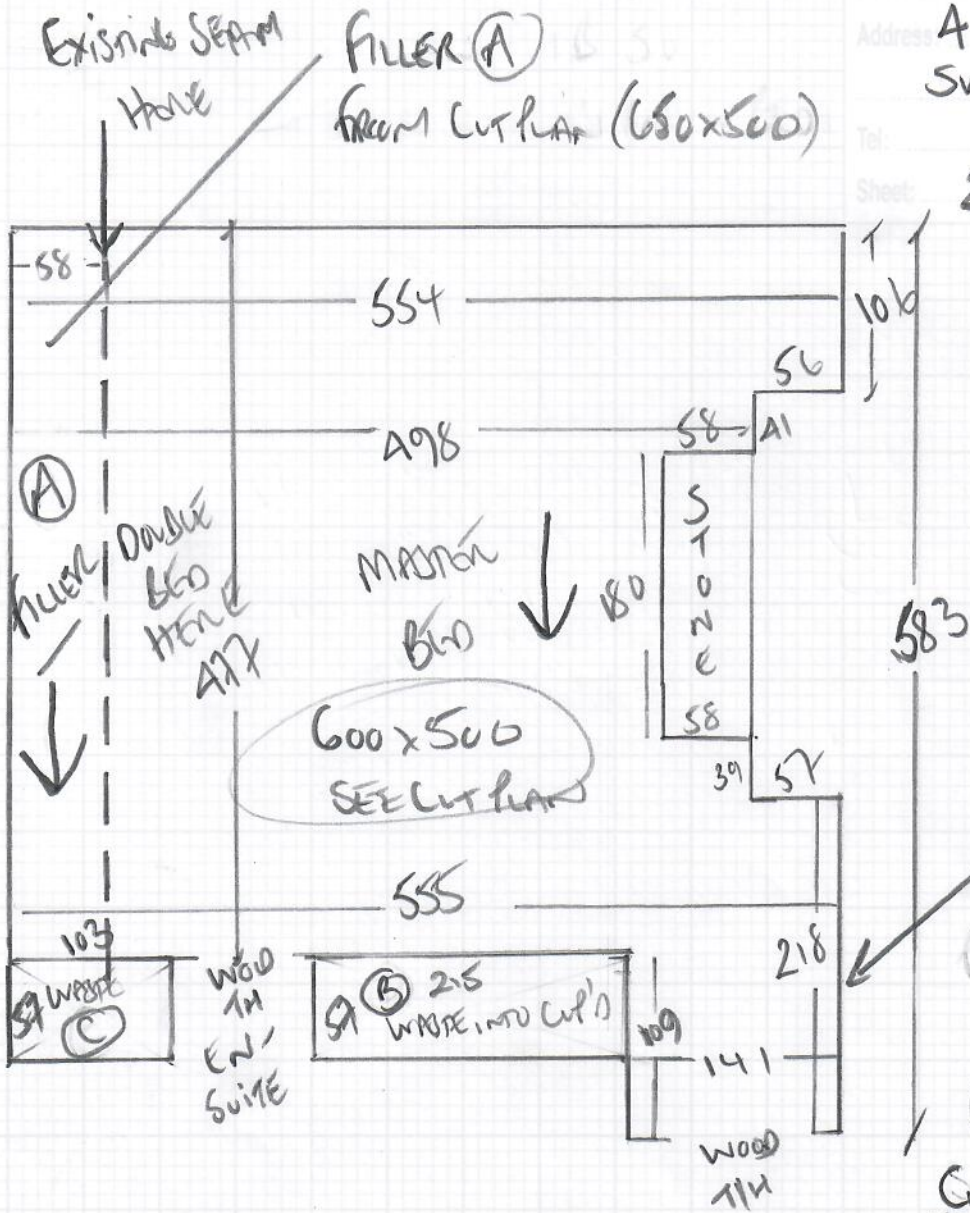 EXISTING SEAM
HERE
FILLER (A)
FROM CUT PLAN (650x500)
Address:
Tel:
Sheet:
58
554
106
56
498
58
41
A
FILLER
DOUBLE
BED
HERE
477
MASTER
BED
180
STONE
58
39
57
583
600x500
SEE CUT PLAN
555
218
103
57 WASTE
C
WOOD
T/H
EN-
SUITE
57 B 215
WASTE INTO CUP'D
109
141
WOOD
T/H